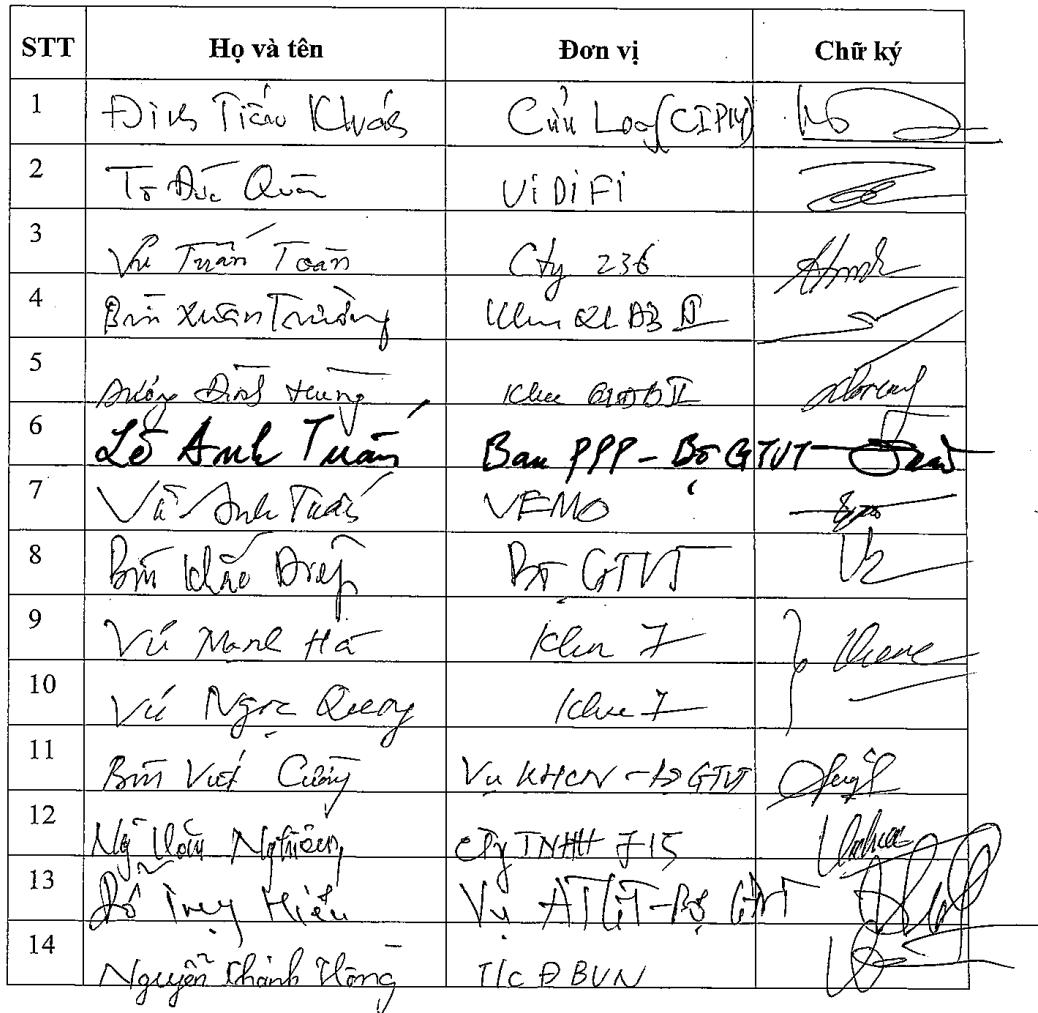 STT Họ và tên Đơn vị Chữ ký
1 Đinh Tiến Cửu Long (CIPM)
2 Tô Đức Quân ViDiFi
3 Vũ Tuấn Toàn Cty 236
4 Bùi Xuân Trường Khu QLĐB II
5 Đình Hùng Khu QLĐB II
6 Lê Anh Tuấn Ban PPP - Bộ GTVT
7 Vũ Anh Tuấn VEMO
8 Bùi Khắc Điệp Bộ GTVT
9 Vũ Mạnh Hà Khu 7
10 Vũ Ngọc Quang Khu 7
11 Bùi Cường Vụ KHCN - Bộ GTVT
12 Văn Cty TNHH 715
13 Đỗ Hiếu Vụ ATGT - Bộ GTVT
14 Nguyễn Thành T/c ĐBVN